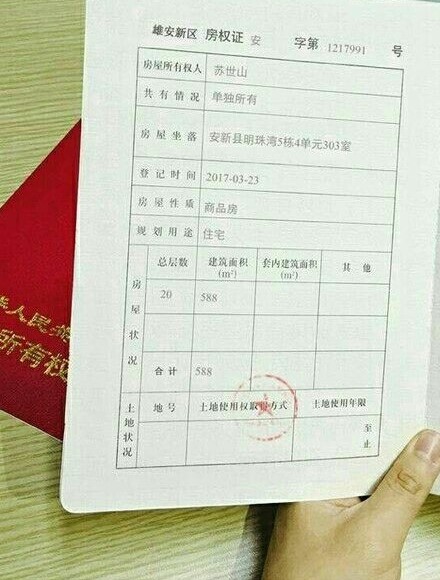 雄安新区 房权证 安 字第 1217991 号
房屋所有权人 苏世山
共有情况 单独所有
房屋坐落 安新县明珠湾5栋4单元303室
登记时间 2017-03-23
房屋性质 商品房
规划用途 住宅
房屋状况 总层数 建筑面积(m²) 套内建筑面积(m²) 其他
20 588
合计 588
土地状况 地号 土地使用权取得方式 土地使用年限
至
止
人民
所有权